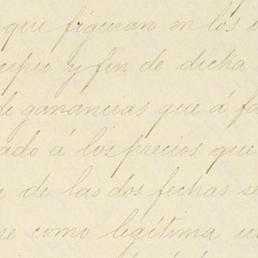 que figuran en los
cipio y fin de dicha
de ganancias que á fa
ado á los precios que
de las dos fechas se
se como legítima u